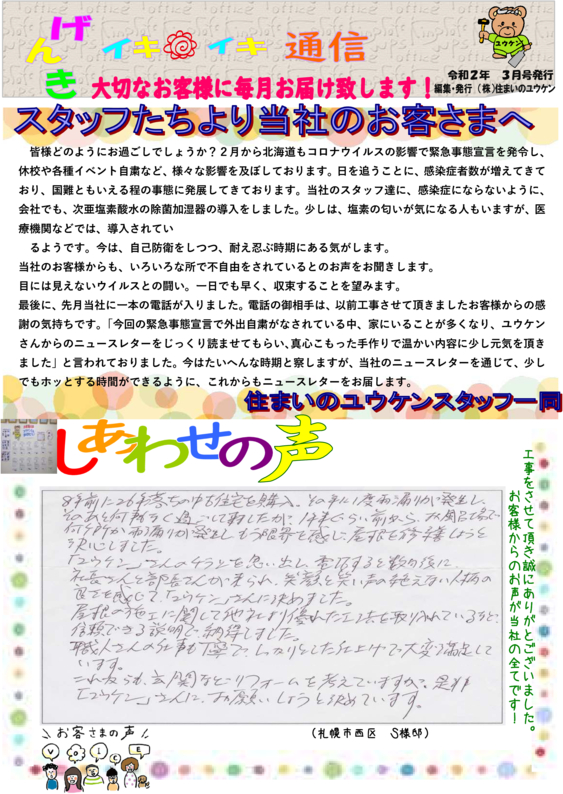 げんき
イキイキ 通信
ユウケン
令和2年 3月号発行
大切なお客様に毎月お届け致します！
編集・発行 (株)住まいのユウケン
スタッフたちより当社のお客さまへ
皆様どのようにお過ごしでしょうか？２月から北海道もコロナウイルスの影響で緊急事態宣言を発令し、
休校や各種イベント自粛など、様々な影響を及ぼしております。日を追うごとに、感染症者数が増えてきて
おり、国難ともいえる程の事態に発展してきております。当社のスタッフ達に、感染症にならないように、
会社でも、次亜塩素酸水の除菌加湿器の導入をしました。少しは、塩素の匂いが気になる人もいますが、医
療機関などでは、導入されてい
るようです。今は、自己防衛をしつつ、耐え忍ぶ時期にある気がします。
当社のお客様からも、いろいろな所で不自由をされているとのお声をお聞きします。
目には見えないウイルスとの闘い。一日でも早く、収束することを望みます。
最後に、先月当社に一本の電話が入りました。電話の御相手は、以前工事させて頂きましたお客様からの感
謝の気持ちです。「今回の緊急事態宣言で外出自粛がなされている中、家にいることが多くなり、ユウケン
さんからのニュースレターをじっくり読ませてもらい、真心こもった手作りで温かい内容に少し元気を頂き
ました」と言われておりました。今はたいへんな時期と察しますが、当社のニュースレターを通じて、少し
でもホッとする時間ができるように、これからもニュースレターをお届します。
住まいのユウケンスタッフ一同
しあわせの声
工事をさせて頂き誠にありがとございました。
お客様からのお声が当社の全てです！
8年前に26年落ちの中古住宅を購入。その年に1度雨漏りが発生し、
そのあと何事もなく過ごして来ましたが、1年ぐらい前から、お風呂場で
何ヶ所か雨漏りが発生し、もう限界を感じ、屋根を修繕しようと
決心しました。
「ユウケン」さんのチラシを思い出し、電話すると数日後に、
社長さんと部長さんが来られ、笑顔と笑い声の絶えない人柄の
良さを感じて、「ユウケン」さんに決めました。
屋根の施工に関して他社より優れた工法を取り入れているなど、
信頼できる説明で納得しました。
職人さんの仕事も丁寧で、しっかりとした仕上げで大変満足して
います。
これからも、玄関などリフォームを考えていますが、是非
「ユウケン」さんに、お願いしようと決めています。
お客さまの声
VOICE
(札幌市西区 S様邸)